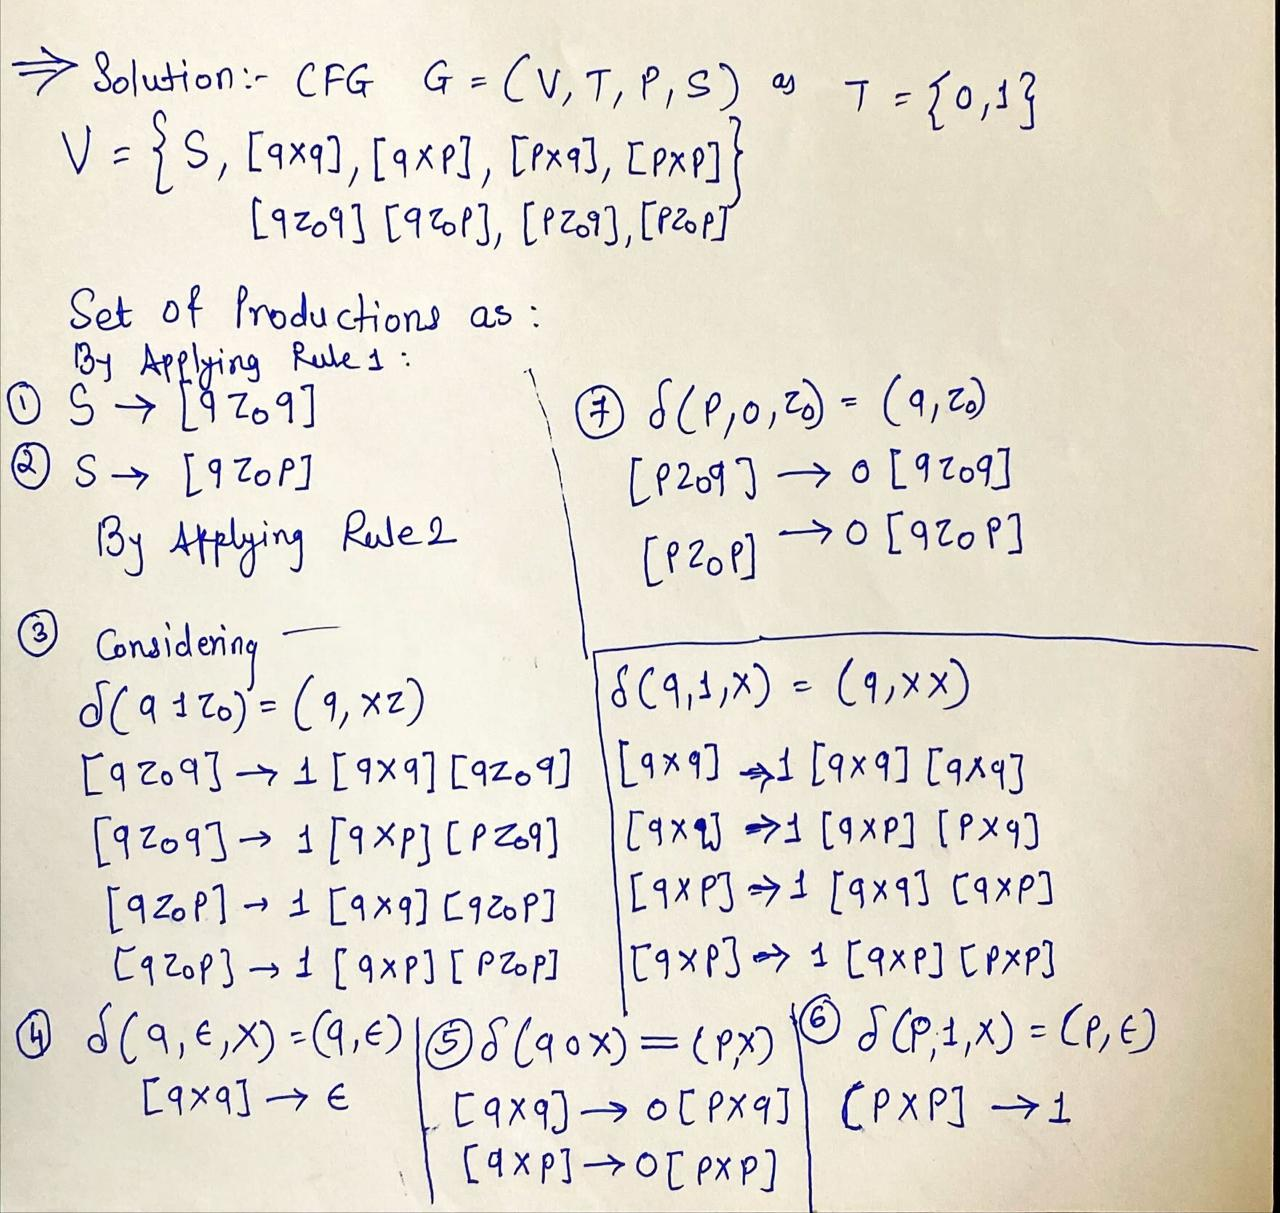 ⇒ Solution:- CFG G = (V, T, P, S) as T = {0,1}
V = {S, [qxq], [qxp], [pxq], [pxp]}
[qz₀q] [qz₀p], [pz₀q], [pz₀p]
Set of Productions as :
By Applying Rule 1 :
① S → [qz₀q]
② S → [qz₀p]
By Applying Rule 2
③ Considering —
δ(q 1 z₀) = (q, xz)
[qz₀q] → 1 [qxq] [qz₀q]
[qz₀q] → 1 [qxp] [pz₀q]
[qz₀p] → 1 [qxq] [qz₀p]
[qz₀p] → 1 [qxp] [pz₀p]
⑦ δ(p,0,z₀) = (q,z₀)
[pz₀q] → 0 [qz₀q]
[pz₀p] → 0 [qz₀p]
δ(q,1,x) = (q,xx)
[qxq] → 1 [qxq] [qxq]
[qxq] → 1 [qxp] [pxq]
[qxp] → 1 [qxq] [qxp]
[qxp] → 1 [qxp] [pxp]
④ δ(q,ϵ,x) = (q,ϵ)
[qxq] → ϵ
⑤ δ(q0x) = (p,x)
[qxq] → 0[pxq]
[qxp] → 0[pxp]
⑥ δ(p,1,x) = (p,ϵ)
[pxp] → 1